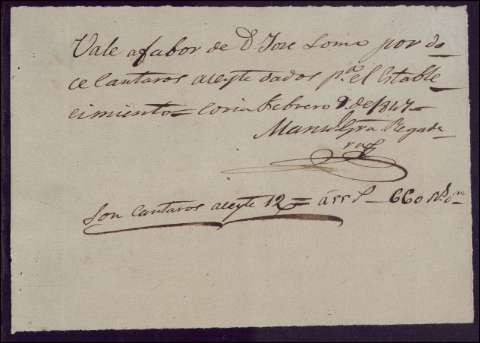 Vale a fabor de D. Jose Lomo por do
ce Cantaros aceyte dados p.ª el Estable
cimiento = Coria Febrero 9 de 1847 =
Man.l Gra Regade
ra
Son cantaros aceyte 12 = á 55 r.s = 660 R.s